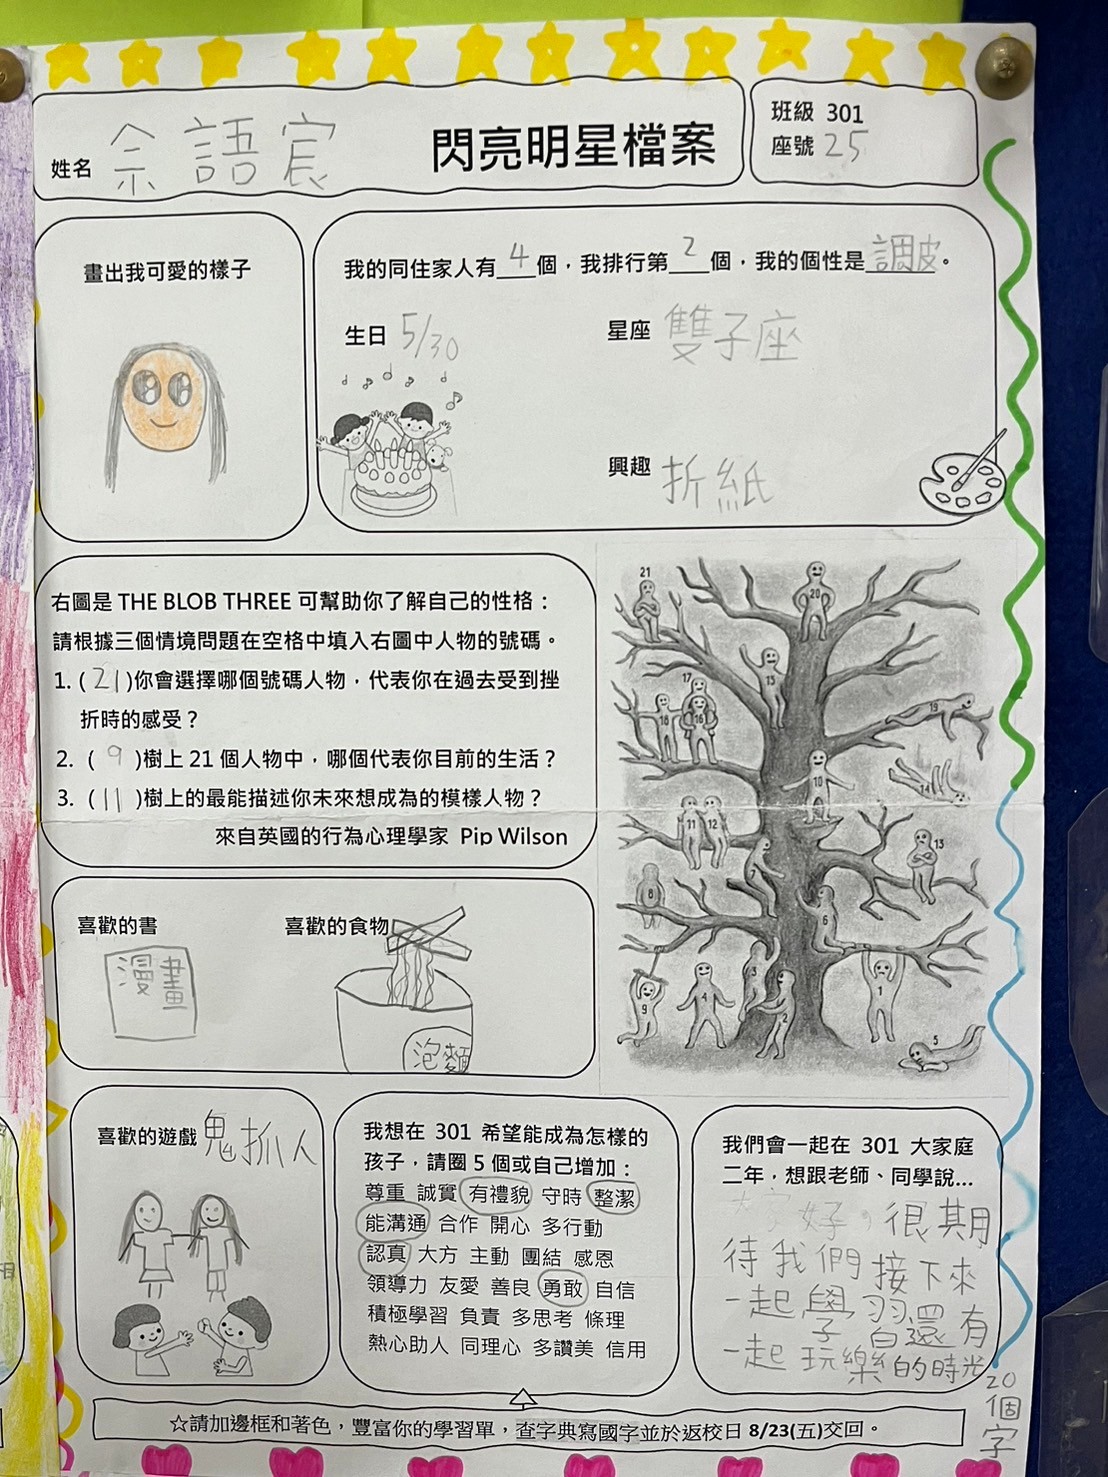 姓名 余語宸
閃亮明星檔案
班級 301
座號 25
畫出我可愛的樣子
我的同住家人有 4 個,我排行第 2 個,我的個性是 調皮 。
生日 5/30
星座 雙子座
興趣 折紙
右圖是 THE BLOB THREE 可幫助你了解自己的性格:
請根據三個情境問題在空格中填入右圖中人物的號碼。
1. ( 21 )你會選擇哪個號碼人物,代表你在過去受到挫
折時的感受?
2. ( 9 )樹上 21 個人物中,哪個代表你目前的生活?
3. ( 11 )樹上的最能描述你未來想成為的模樣人物?
來自英國的行為心理學家 Pip Wilson
21
20
17
15
18
16
19
10
14
11 12
13
7
8
6
3
9
4
2
1
5
喜歡的書
漫畫
喜歡的食物
泡麵
喜歡的遊戲 鬼抓人
我想在 301 希望能成為怎樣的
孩子,請圈 5 個或自己增加:
尊重 誠實 有禮貌 守時 整潔
能溝通 合作 開心 多行動
認真 大方 主動 團結 感恩
領導力 友愛 善良 勇敢 自信
積極學習 負責 多思考 條理
熱心助人 同理心 多讚美 信用
我們會一起在 301 大家庭
二年,想跟老師、同學說...
大家好,很期
待我們接下來
一起學習還有
一起玩樂的時光
20
個
字
☆請加邊框和著色,豐富你的學習單,查字典寫國字並於返校日 8/23(五)交回。